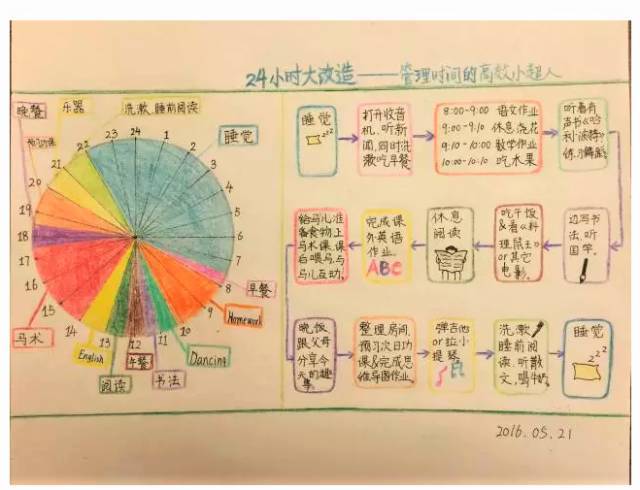 24小时大改造——管理时间的高效小超人
晚餐
乐器
洗漱、睡前阅读
睡觉
24
1
2
3
4
5
6
7
8
9
10
11
12
13
14
15
16
17
18
19
20
21
22
23
早餐
Homework
Dancing
书法
午餐
阅读
English
马术
睡觉
zzz
打开收音
机、听新
闻,同时洗
漱吃早餐
8:00-9:00 语文作业
9:00-9:10 休息浇花
9:10-10:00 数学作业
10:00-10:10 吃水果
听着有
声书《哈
利·波特》
边写书
法、听
国学。
吃午饭
&看《料
理鼠王》
or其它
电影。
休息
阅读
完成课
外英语
作业。
ABC
给马儿准
备食物,上
马术课,课
后喂马,与
马儿互动。
晚饭
跟父母
分享今
天的趣
事。
整理房间,
预习次日功
课&完成思
维导图作业。
弹吉他
or拉小
提琴
洗漱
睡前阅
读、听散
文,喝牛奶。
睡觉
zzz
2016.05.21